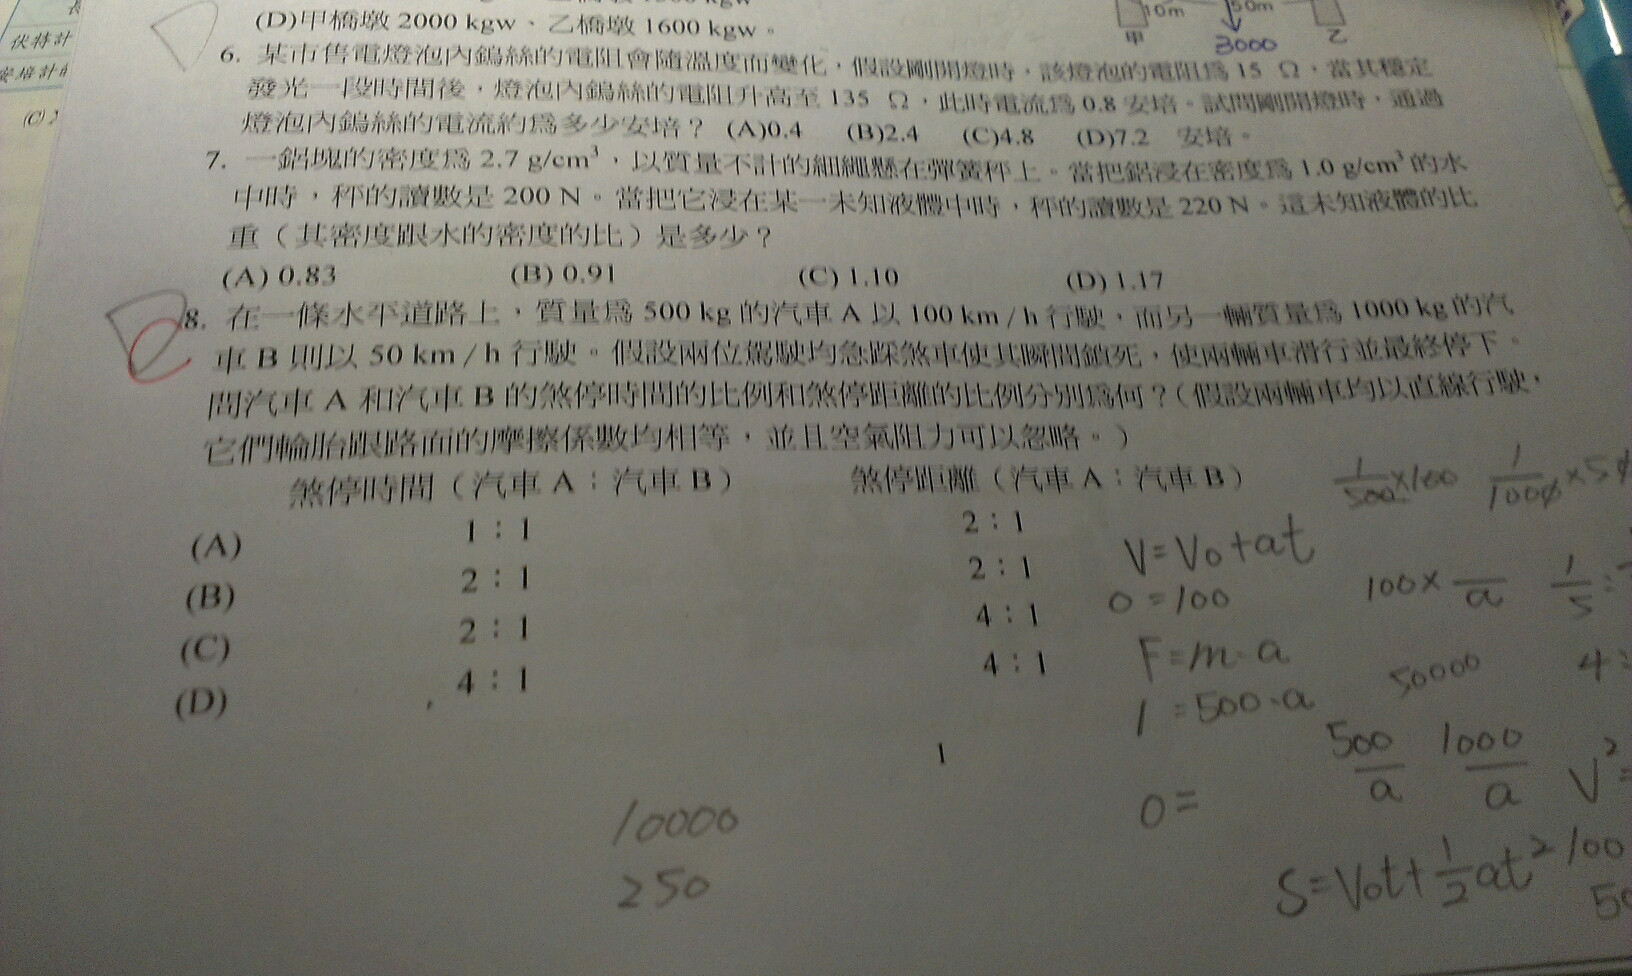 伏特計
(D)甲橋墩 2000 kgw、乙橋墩 1600 kgw。
10m
50m
甲
3000
乙
6. 某市售電燈泡內鎢絲的電阻會隨溫度而變化,假設剛開燈時,該燈泡的電阻為 15 Ω,當其穩定
發光一段時間後,燈泡內鎢絲的電阻升高至 135 Ω,此時電流為 0.8 安培。試問剛開燈時,通過
燈泡內鎢絲的電流約為多少安培? (A)0.4 (B)2.4 (C)4.8 (D)7.2 安培。
7. 一鋁塊的密度為 2.7 g/cm³,以質量不計的細繩懸在彈簧秤上。當把鋁浸在密度為 1.0 g/cm³ 的水
中時,秤的讀數是 200 N。當把它浸在某一未知液體中時,秤的讀數是 220 N。這未知液體的比
重(其密度跟水的密度的比)是多少?
(A) 0.83 (B) 0.91 (C) 1.10 (D) 1.17
8. 在一條水平道路上,質量為 500 kg 的汽車 A 以 100 km / h 行駛,而另一輛質量為 1000 kg 的汽
車 B 則以 50 km / h 行駛。假設兩位駕駛均急踩煞車使其瞬間鎖死,使兩輛車滑行並最終停下。
問汽車 A 和汽車 B 的煞停時間的比例和煞停距離的比例分別為何?(假設兩輛車均以直線行駛,
它們輪胎跟路面的摩擦係數均相等,並且空氣阻力可以忽略。)
煞停時間(汽車 A:汽車 B) 煞停距離(汽車 A:汽車 B)
(A) 1:1 2:1
(B) 2:1 2:1
(C) 2:1 4:1
(D) 4:1 4:1
1
C
1/500 ×100
V=V0+at
0=100
100×
F=m·a
1=500·a
50000
500/a 1000/a
0=
S=V0t+1/2at²
100
10000
250